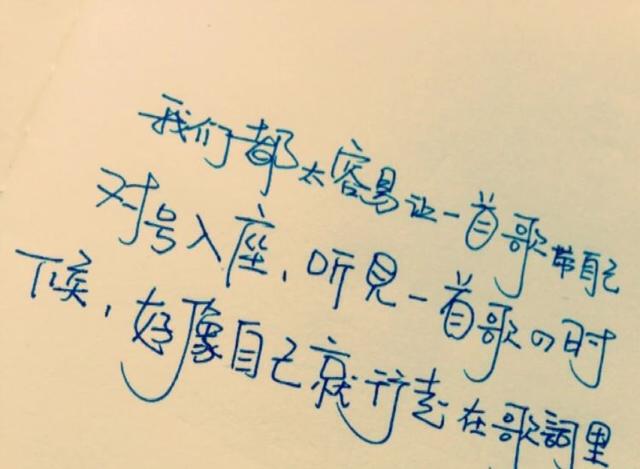 我们都太容易让一首歌带自己
对号入座，听见一首歌的时
候，好像自己就行走在歌词里